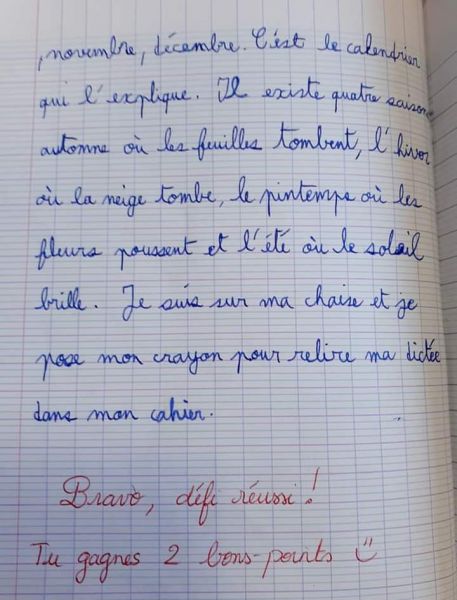 , novembre, décembre. C'est le calendrier
qui l'explique. Il existe quatre saisons
automne où les feuilles tombent, l'hiver
où la neige tombe, le pintemps où les
fleurs poussent et l'été où le soleil
brille. Je suis sur ma chaise et je
pose mon crayon pour relire ma dictée
dans mon cahier.
Bravo, défi réussi !
Tu gagnes 2 bons-points